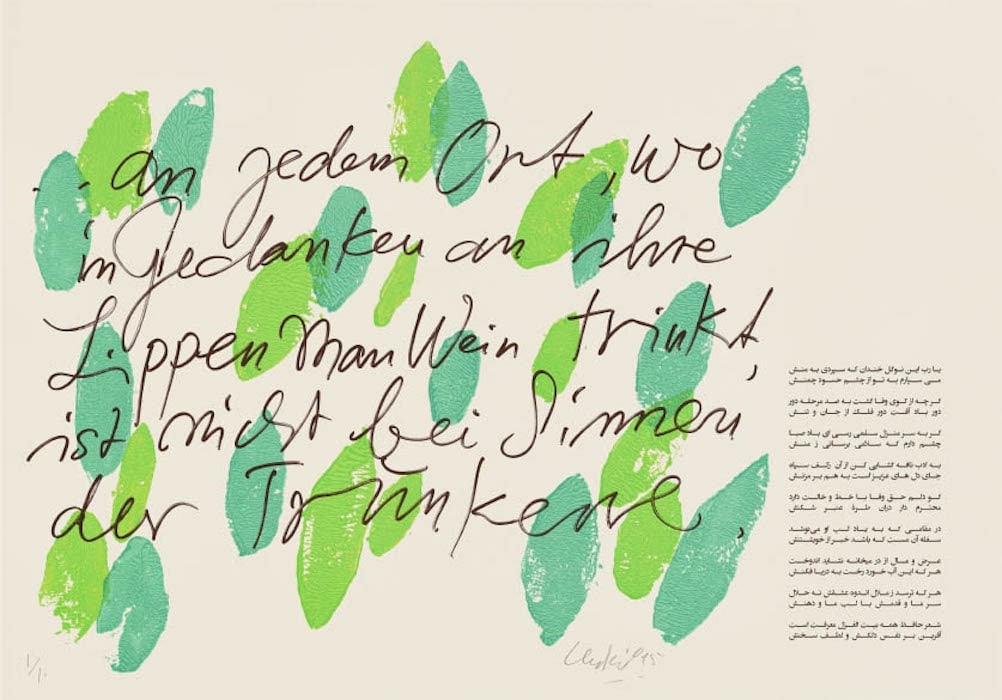 ... an jedem Ort, wo
in Gedanken an ihre
Lippen man Wein trinkt,
ist nicht bei Sinnen
der Trunkene,
یا رب این نوگل خندان که سپردی به منش
می سپارم به تو از چشم حسود چمنش
گرچه از کوی وفا گشت به صد مرحله دور
دور باد آفت دور فلک از جان و تنش
گر به سر منزل سلمی رسی ای باد صبا
چشم دارم که سلامی برسانی ز منش
به ادب نافه گشایی کن از آن زلف سیاه
جای دل های عزیز است به هم بر مزنش
گو دلم حق وفا با خط و خالت دارد
محترم دار دران طره عنبر شکنش
در مقامی که به یاد لب او می نوشند
سفله آن مست که باشد خبر از خویشتنش
عرض و مال از در میخانه نشاید اندوخت
هر که این آب خورد رخت به دریا فکنش
هر که ترسد ز ملال اندوه عشقش نه حلال
سر ما و قدمش یا لب ما و دهنش
شعر حافظ همه بیت الغزل معرفت است
آفرین بر نفس دلکش و لطف سخنش